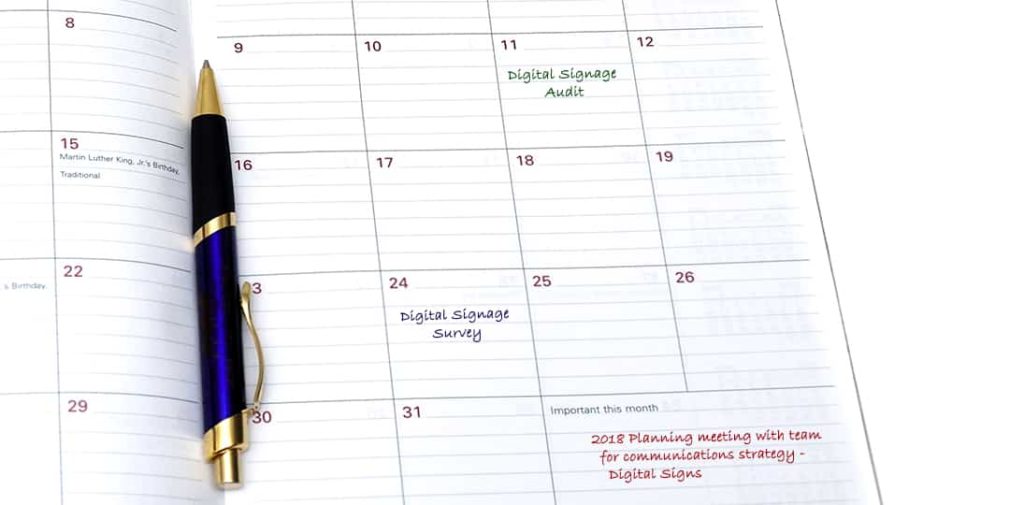 8
9
10
11
12
Digital Signage
Audit
15
Martin Luther King, Jr.'s Birthday,
Traditional
16
17
18
19
22
s Birthday,
3
24
25
26
Digital Signage
Survey
29
30
31
Important this month
2018 Planning meeting with team
for communications strategy -
Digital Signs